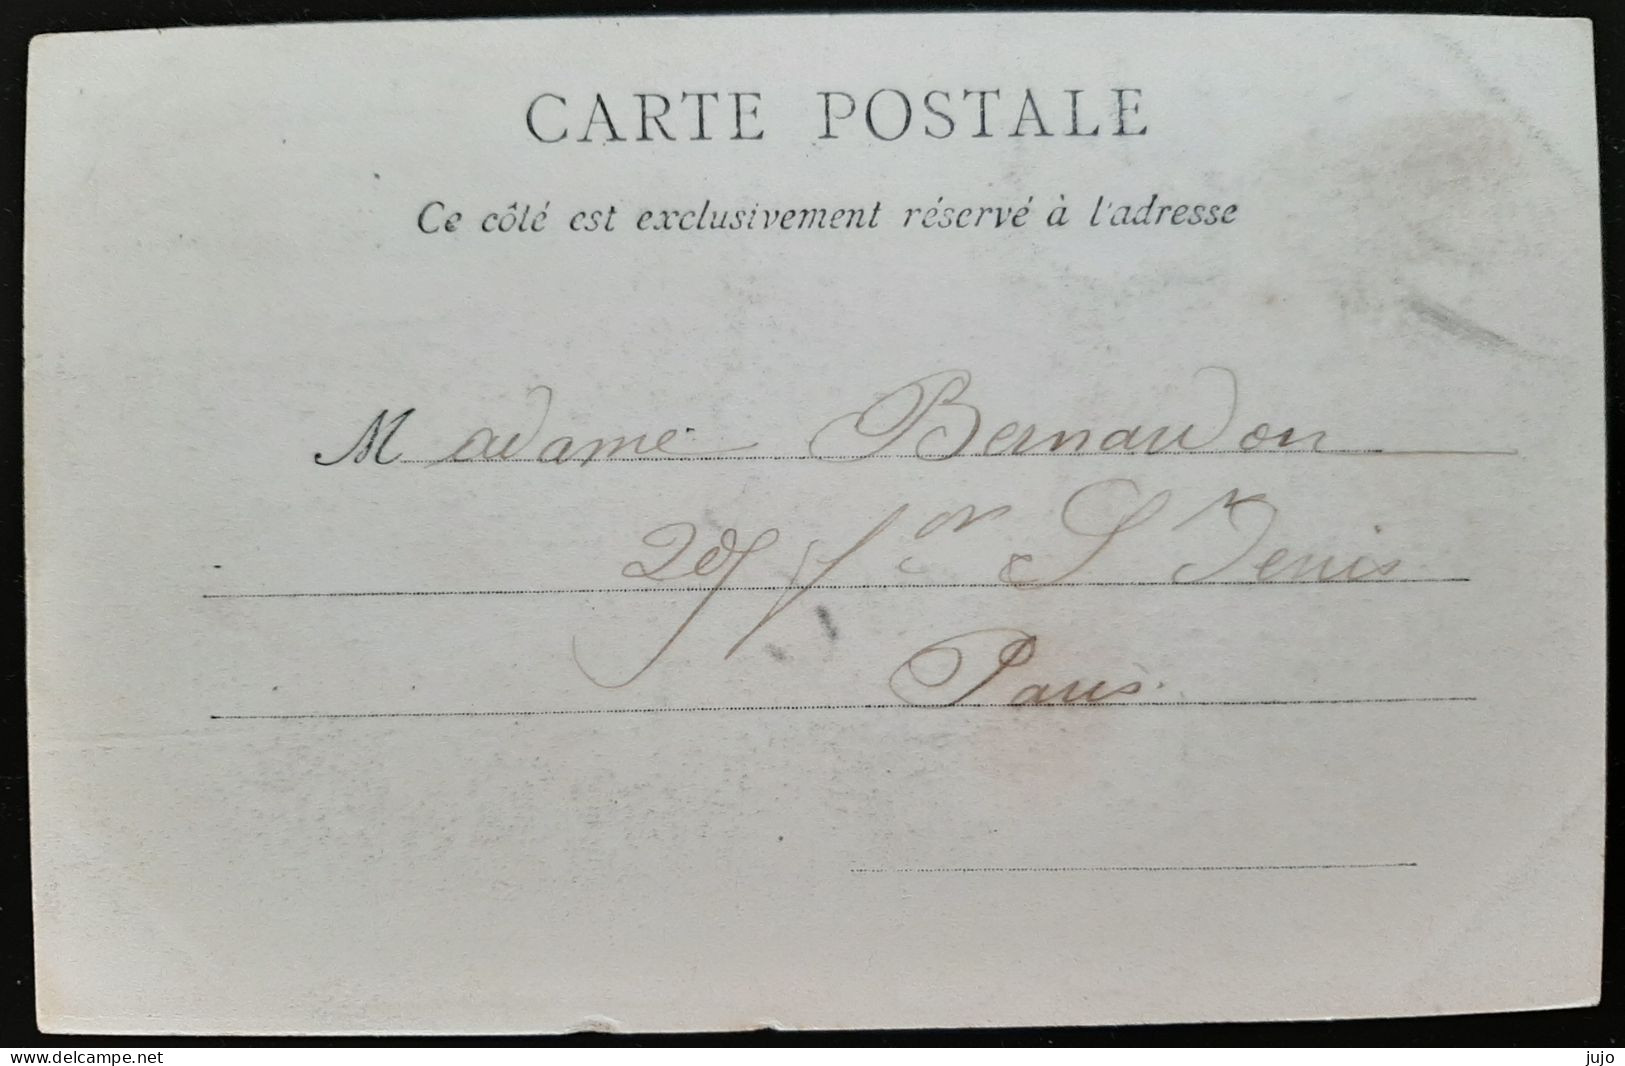 CARTE POSTALE
Ce côté est exclusivement réservé à l'adresse
Madame Bernardon
St Denis
Paris
www.delcampe.net
jujo